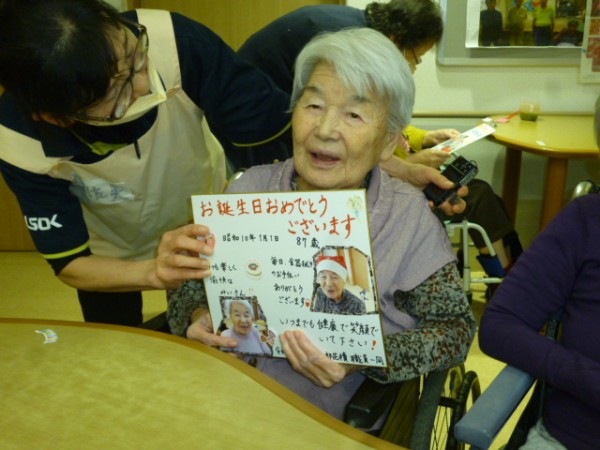 お誕生日おめでとう
ございます
昭和10年1月1日 87歳
いつも楽しく
愉快な
毎日、食器拭き
のお手伝い
ありがとう
ございます
いつまでも健康で笑顔で
いて下さい!
職員一同
LSOK